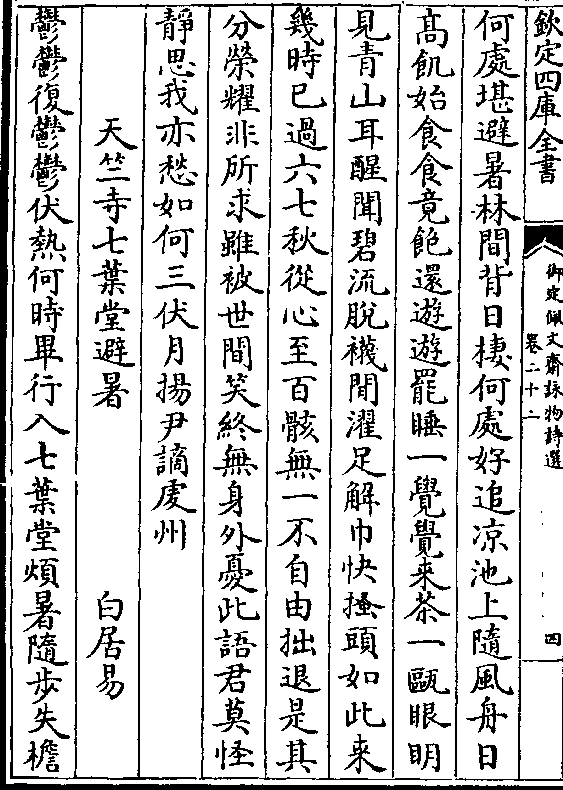 欽定四庫全書
御定佩文齋詠物詩選
卷二十二
四
何處堪避暑林間背日棲何處好追凉池上隨風舟日
髙飢始食食竟飽還遊遊罷睡一覺覺来茶一甌眼明
見青山耳醒聞碧流脱襪閒濯足解巾快搔頭如此来
幾時已過六七秋從心至百骸無一不自由拙退是其
分榮耀非所求雖被世間笑終無身外憂此語君莫怪
靜思我亦愁如何三伏月揚尹謫䖏州
天竺寺七葉堂避暑
白居易
鬱鬱復鬱鬱伏熱何時畢行入七葉堂煩暑隨步失檐